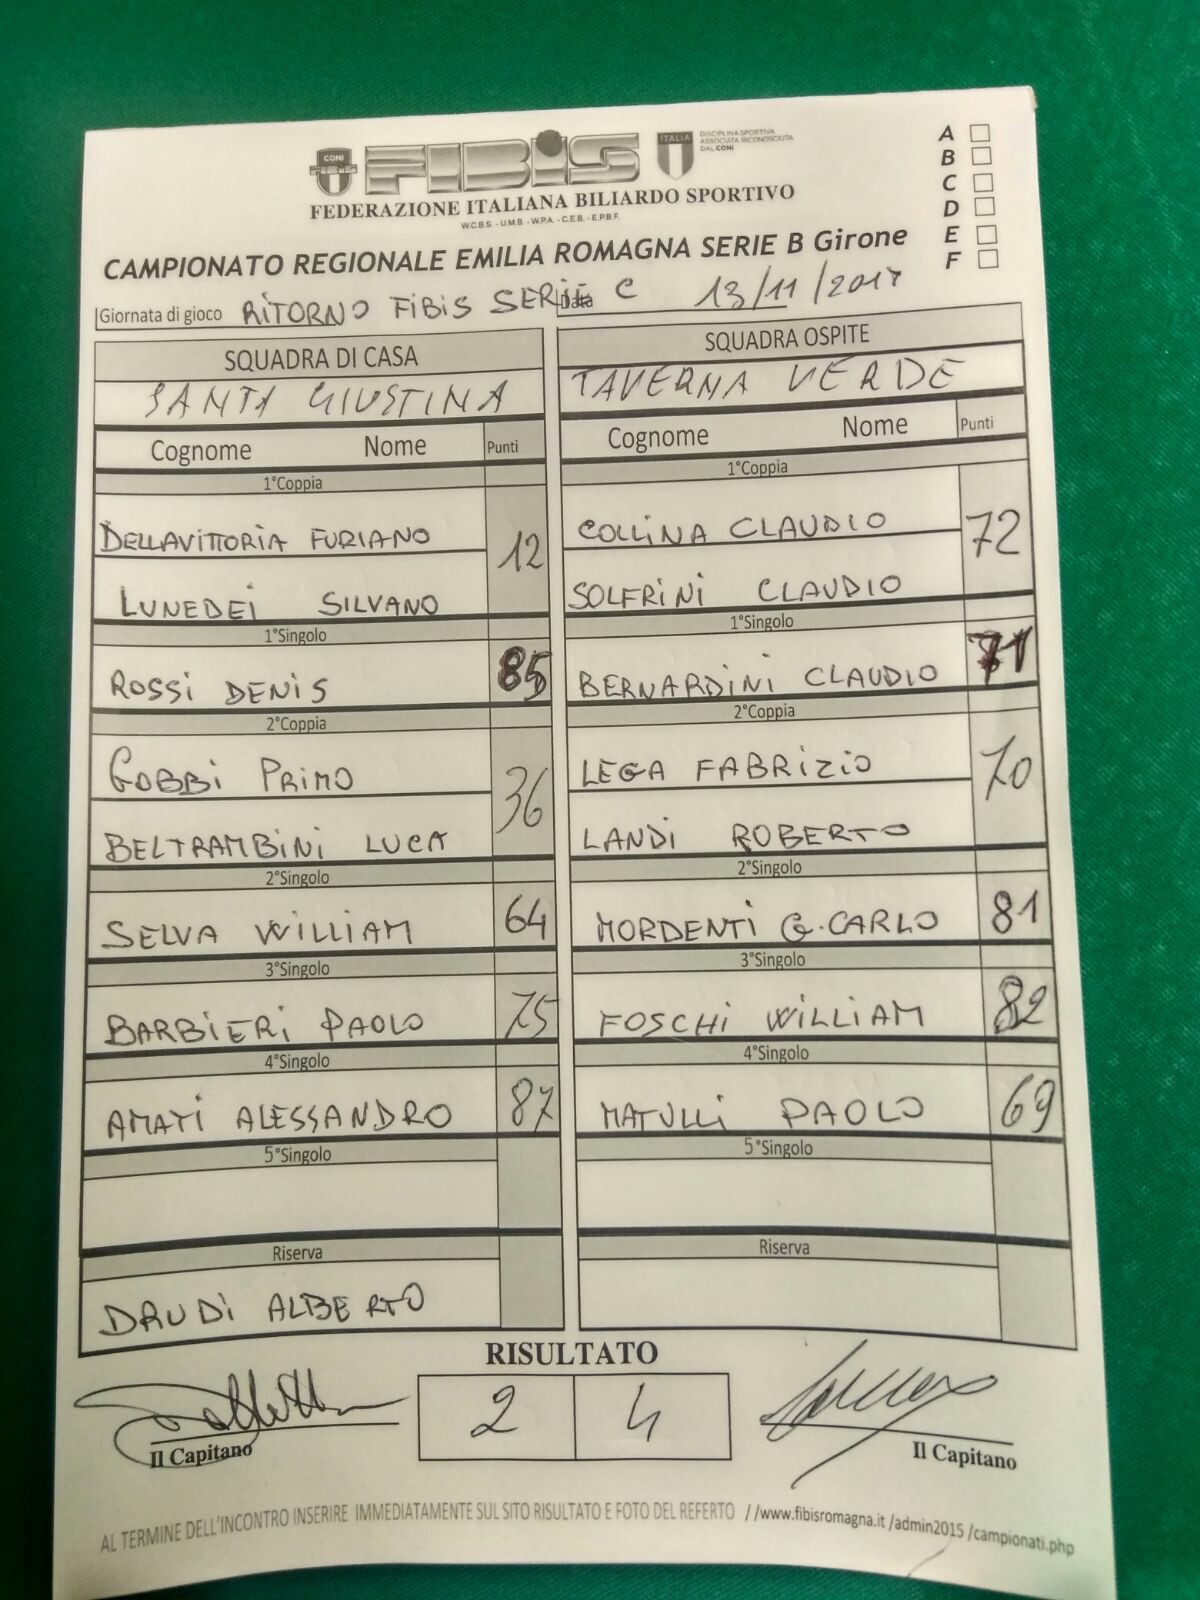 CONI
FIBiS
ITALIA
DISCIPLINA SPORTIVA
ASSOCIATA RICONOSCIUTA
DAL CONI
FEDERAZIONE ITALIANA BILIARDO SPORTIVO
W.C.B.S. - U.M.B. - W.P.A. - C.E.B. - E.P.B.F.
A
B
C
D
E
F
CAMPIONATO REGIONALE EMILIA ROMAGNA SERIE B Girone
Giornata di gioco RITORNO FIBIS SERIE C Data 13/11/2017
SQUADRA DI CASA SQUADRA OSPITE
SANTA GIUSTINA TAVERNA VERDE
Cognome Nome Punti Cognome Nome Punti
1°Coppia 1°Coppia
DELLAVITTORIA FURIANO 12 COLLINA CLAUDIO 72
LUNEDEI SILVANO SOLFRINI CLAUDIO
1°Singolo 1°Singolo
ROSSI DENIS 85 BERNARDINI CLAUDIO 71
2°Coppia 2°Coppia
GOBBI PRIMO 36 LEGA FABRIZIO 70
BELTRAMBINI LUCA LANDI ROBERTO
2°Singolo 2°Singolo
SELVA WILLIAM 64 MORDENTI G.CARLO 81
3°Singolo 3°Singolo
BARBIERI PAOLO 75 FOSCHI WILLIAM 82
4°Singolo 4°Singolo
AMATI ALESSANDRO 87 MATULLI PAOLO 69
5°Singolo 5°Singolo
Riserva Riserva
DRUDI ALBERTO
RISULTATO
2 4
Il Capitano Il Capitano
AL TERMINE DELL'INCONTRO INSERIRE IMMEDIATAMENTE SUL SITO RISULTATO E FOTO DEL REFERTO //www.fibisromagna.it /admin2015 /campionati.php